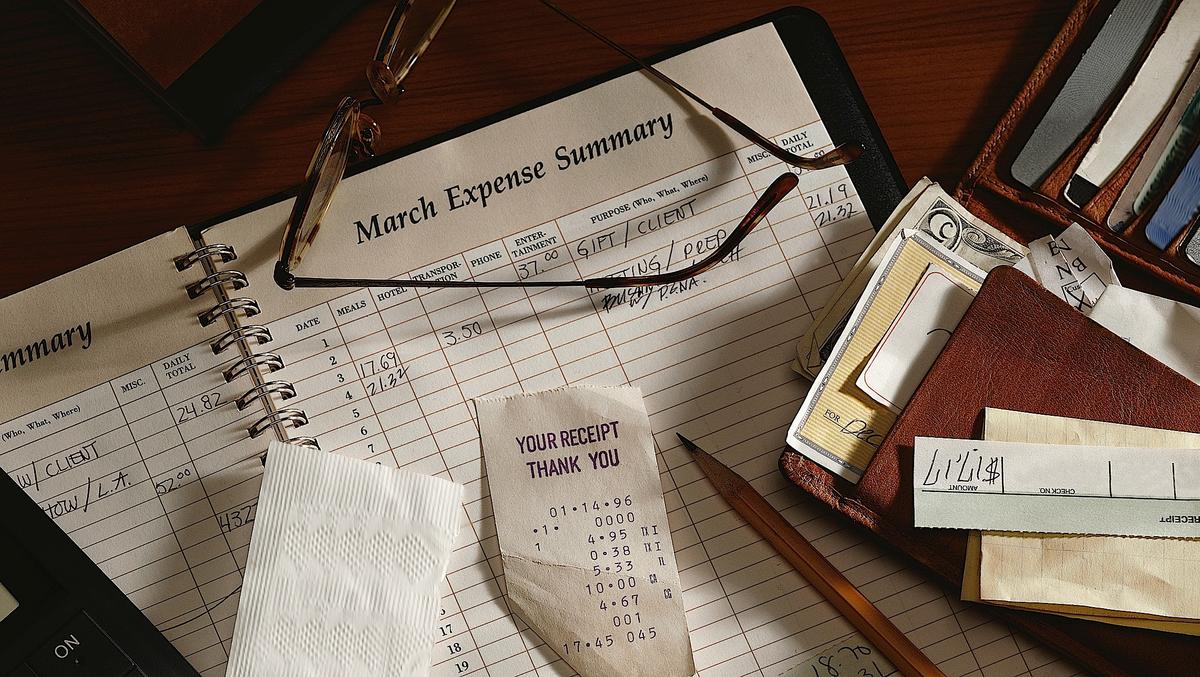 March Expense Summary
DATE
MEALS
HOTEL
PHONE
ENTER-
TAINMENT
PURPOSE (Who, What, Where)
MISC.
DAILY
TOTAL
37.00
GIFT / CLIENT
21.19
21.32
1
2
3.50
3
17.69
4
21.32
5
6
7
17
18
19
mmary
(Who, What, Where)
MISC.
DAILY
TOTAL
24.82
W/ CLIENT
HOW / L.A.
52.00
432
YOUR RECEIPT
THANK YOU
01•14•96
•1• 0000
1 4•95 TX I
0•38 TX I
5•33
10•00
4•67
001
17•45 045
ON
FOR DEC
$17.17
AMOUNT
CHECK NO.
RECEIPT
18.70